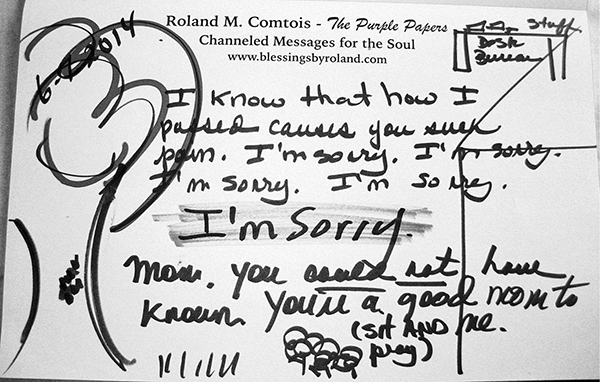 Roland M. Comtois - The Purple Papers
Channeled Messages for the Soul
www.blessingsbyroland.com
2014
Stuff
Desk
Bureau
I know that how I
passed causes you such
pain. I'm sorry. I'm sorry.
I'm sorry. I'm sorry.
I'm Sorry.
Mom. you could not have
known. You're a good mom to
me.
(sit AND
pray)